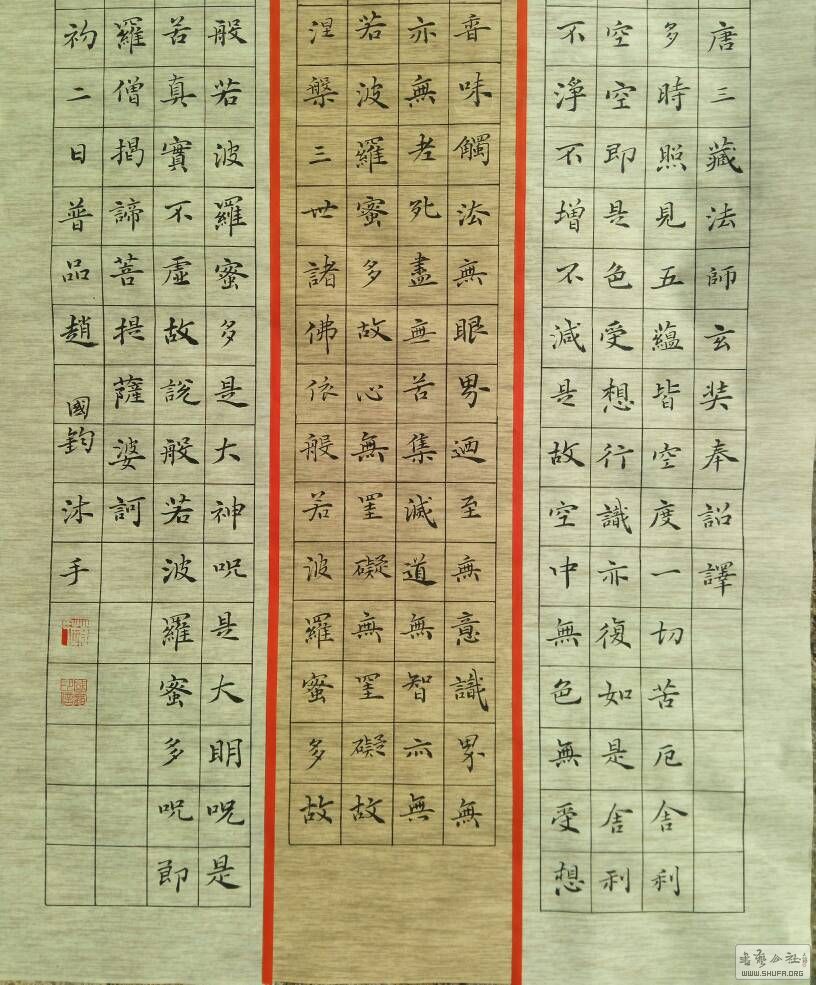 唐三藏法師玄奘奉詔譯
多時照見五蘊皆空度一切苦厄舍利
空空即是色受想行識亦復如是舍利
不淨不增不減是故空中無色無受想
香味觸法無眼界迺至無意識界無
亦無老死盡無苦集滅道無智亦無
若波羅蜜多故心無罣礙無罣礙故
涅槃三世諸佛依般若波羅蜜多故
般若波羅蜜多是大神呪是大明呪是
苦真實不虛故說般若波羅蜜多呪即
羅僧揭諦菩提薩婆訶
初二日普品趙國鈞沐手
書藝公社
WWW.SHUFA.ORG